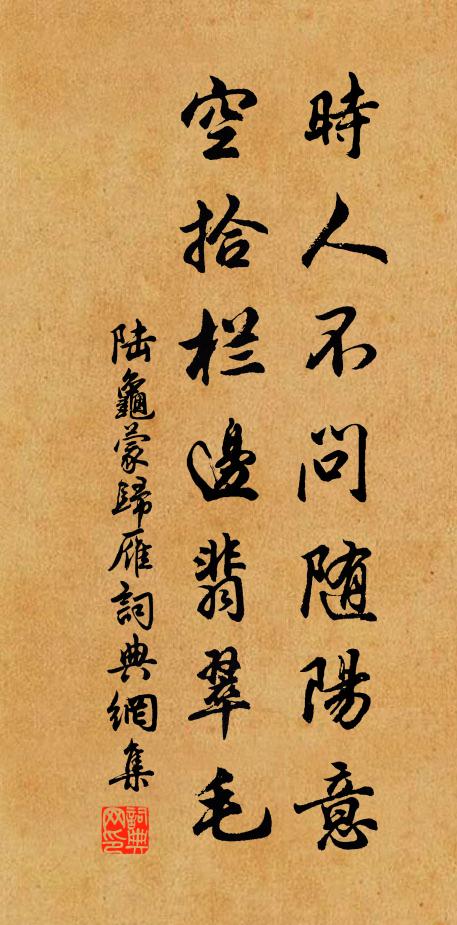 時人不問随陽意
空拾栏邊翡翠毛
陆龜蒙歸雁詞典網集
詞典网印